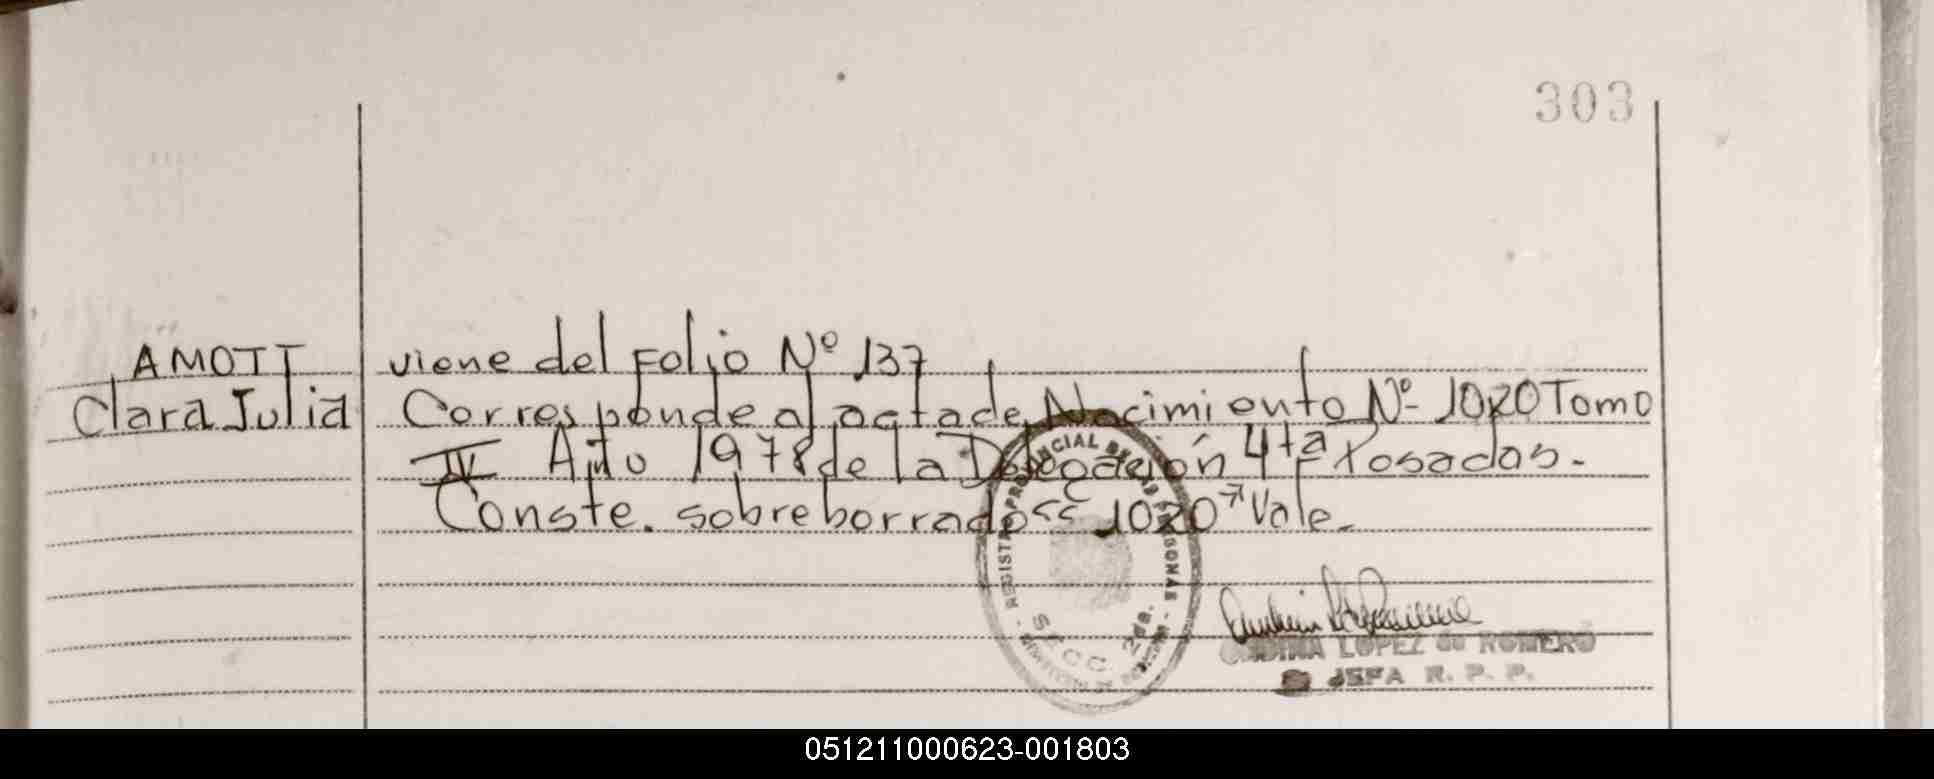 303
AMOTT
Clara Julia
viene del Folio Nº 137
Corresponde al acta de Nacimiento Nº 1020 Tomo
IV Año 1978 de la Delegación 4ta Posadas.-
Conste. sobre borrado "1020" Vale.-
REGISTRO PROVINCIAL DE LAS PERSONAS
SECC. 2da.
LOPEZ de ROMERO
JEFA R. P. P.
051211000623-001803